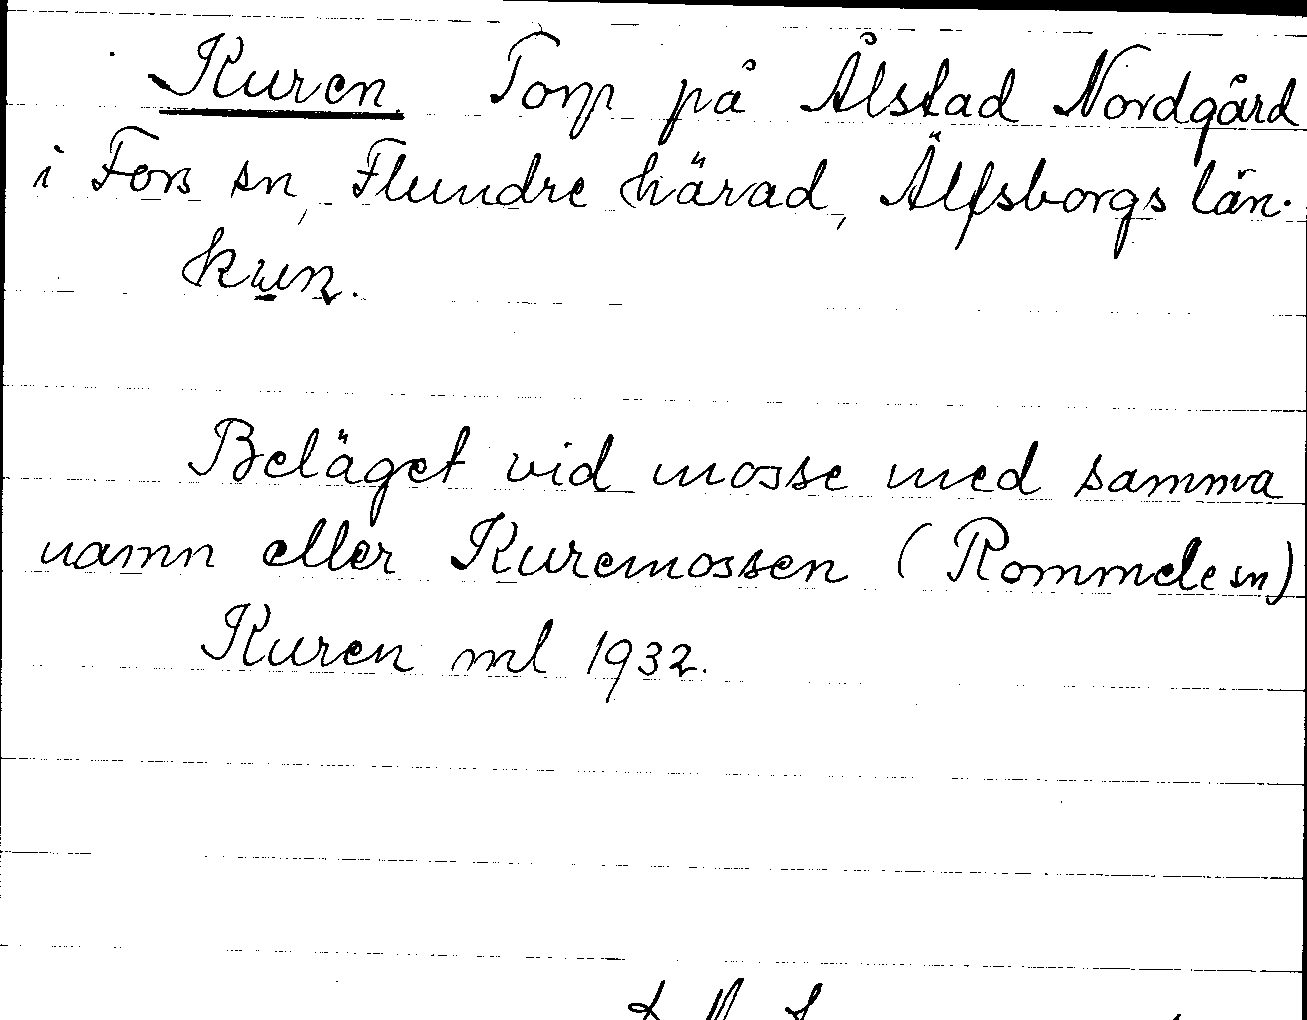 Kuren. Torp på Ålstad Nordgård
i Fors sn, Flundre härad, Älfsborgs län.
Beläget vid mosse med samma
namn eller Kuremossen (Rommele sn)
Kuren ml 1932.